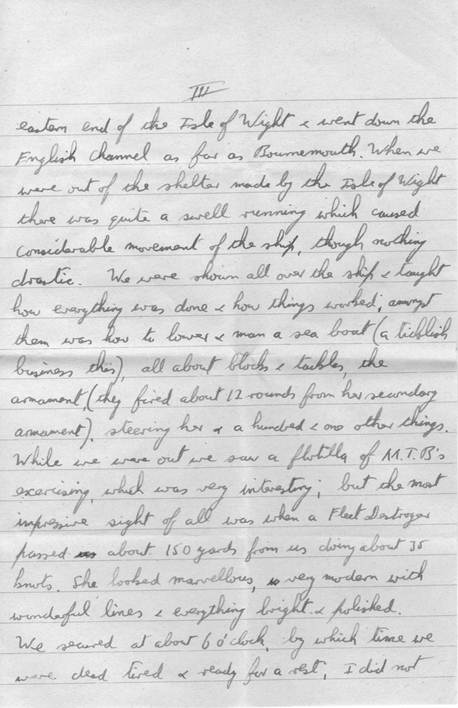 III
eastern end of the Isle of Wight & went down the
English Channel as far as Bournemouth. When we
were out of the shelter made by the Isle of Wight
there was quite a swell running which caused
considerable movement of the ship, though nothing
drastic. We were shown all over the ship & taught
how everything was done & how things worked; amongst
them was how to lower & man a sea boat (a ticklish
business this), all about blocks & tackles, the
armament, (they fired about 12 rounds from her secondary
armament), steering her & a hundred & one other things.
While we were out we saw a flotilla of M.T.B's
exercising, which was very interesting; but the most
impressive sight of all was when a Fleet Destroyer
passed about 150 yards from us doing about 35
knots. She looked marvellous, very modern with
wonderful lines & everything bright & polished.
We secured at about 6 o'clock, by which time we
were dead tired & ready for a rest, I did not